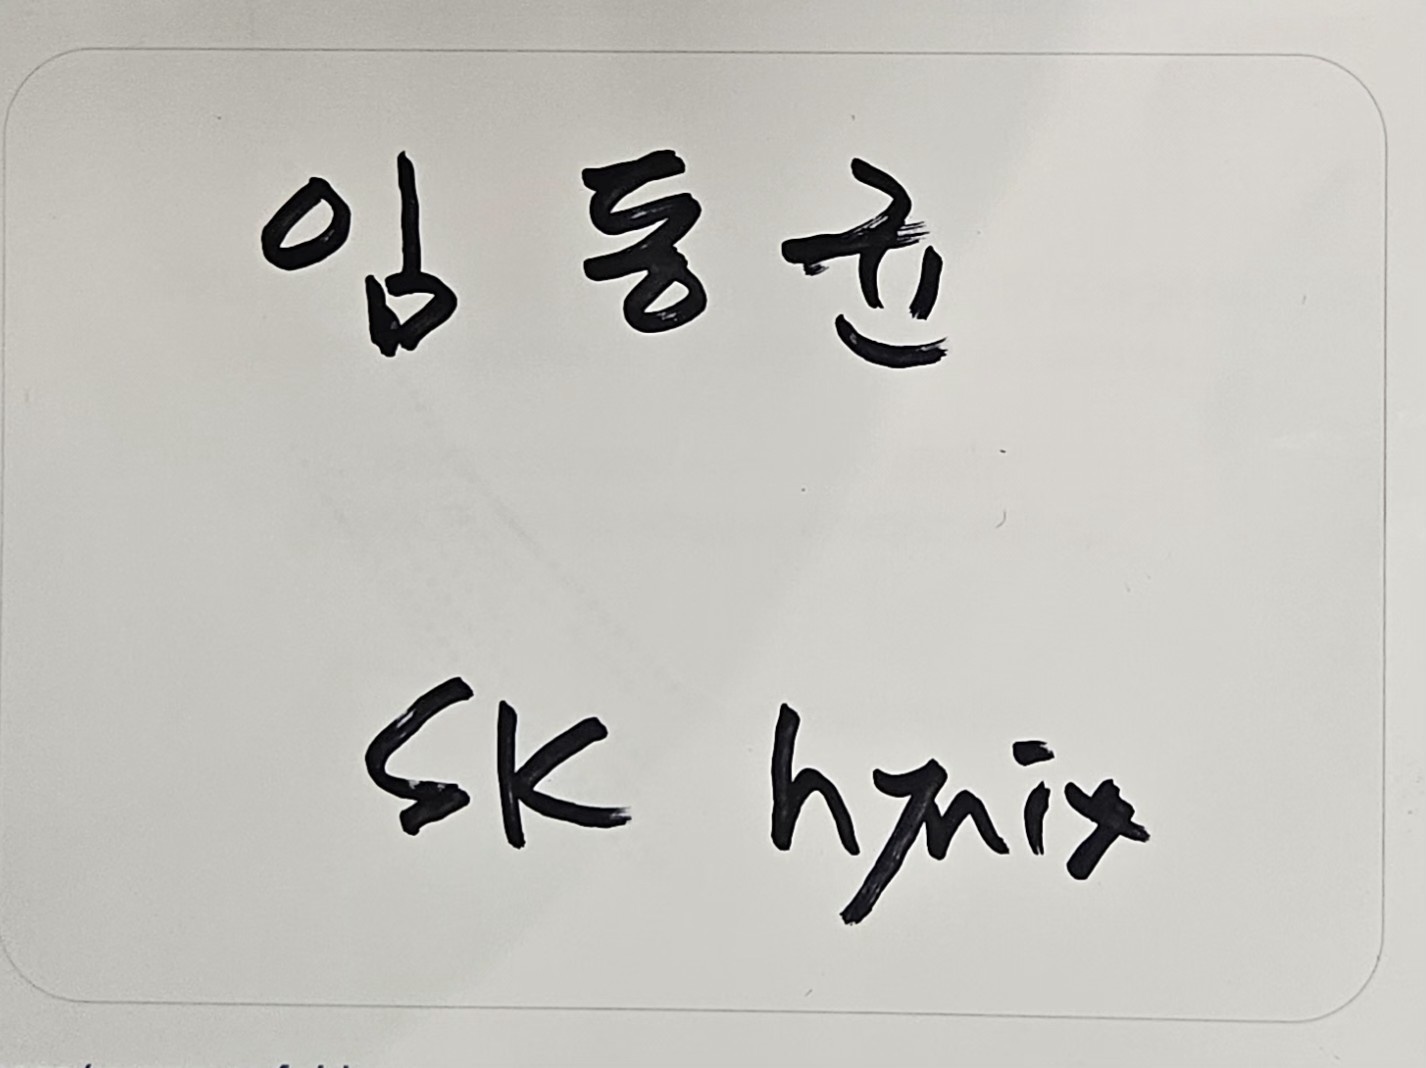 임동균
SK hynix